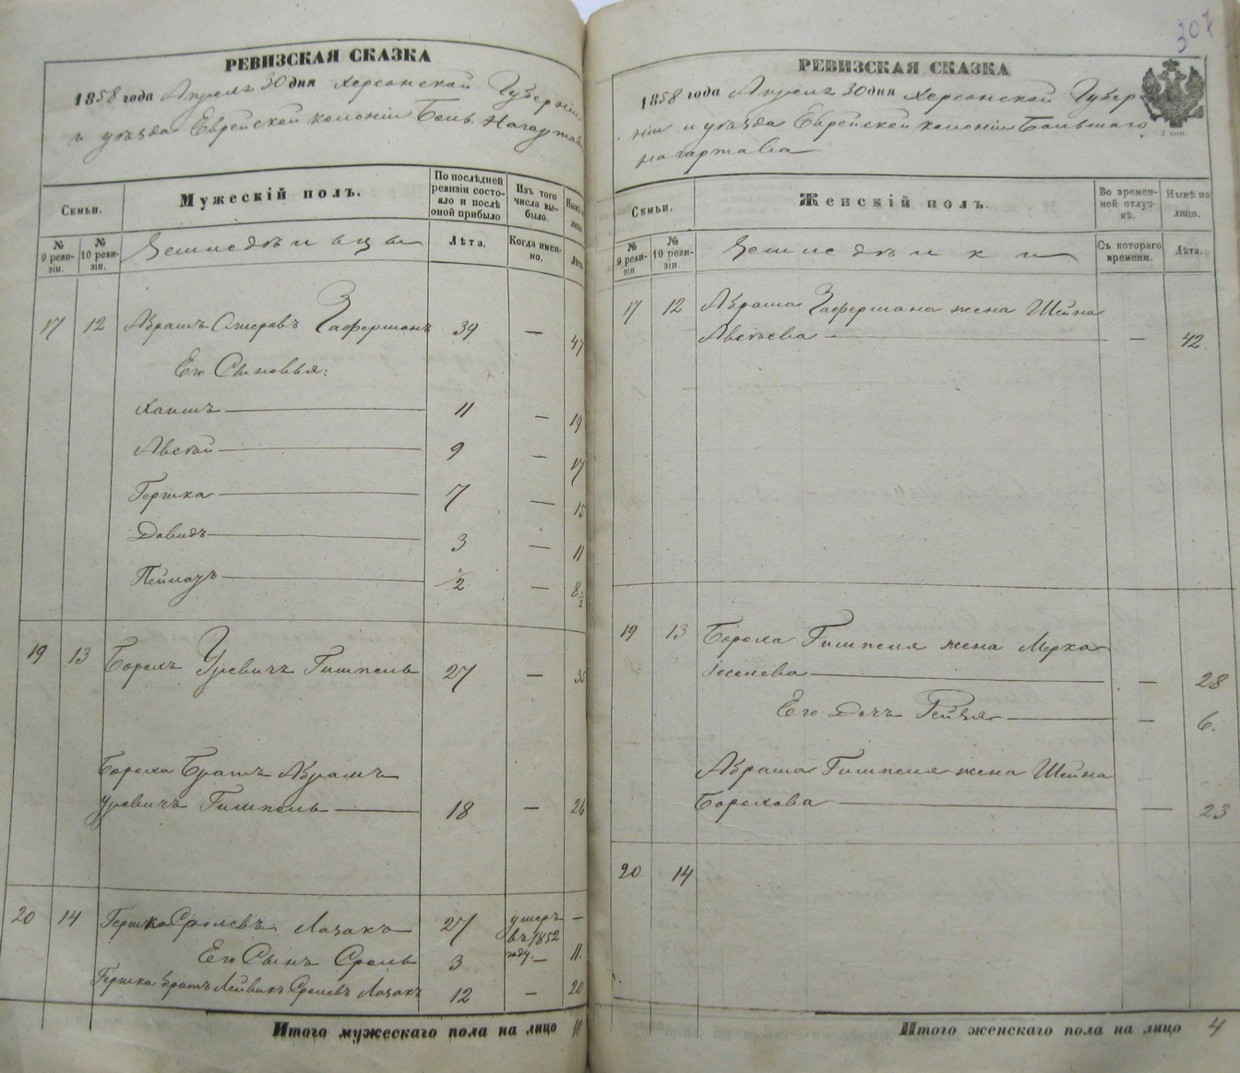 РЕВИЗСКАЯ СКАЗКА
1858 года Апреля 30 дня Херсонской Губерніи
и уѣзда Еврейской колоніи Боль. Нагартава
Семьи.
Мужескій полъ.
По послѣдней ревизіи состояло и послѣ оной прибыло
Изъ того числа выбыло.
Нынѣ
№ 9 ревизіи.
№ 10 ревизіи.
Земледѣльцы
Лѣта.
Когда именно.
Лѣта
17 12 Абрамъ Ошеровъ Заферманъ 39 — 47
Его Сыновья:
Хаимъ 11 — 19
Авсѣй 9 — 17
Гершка 7 — 15
Довидъ 3 — 11
½ — 8½
19 13 Борохъ Гимпель 27 — 35
Бороха Братъ Абрамъ
Гимпель 18 — 26
20 14 Гершко Сролевъ Лазакъ 27 умеръ —
въ 1852
году
Его Сынъ Сроль 3 — 11.
Гершка братъ Лейвикъ Сролевъ Лазакъ 12 — 20
Итого мужескаго пола на лицо 10
307
РЕВИЗСКАЯ СКАЗКА
1858 года Апреля 30 дня Херсонской Губер-
ніи и уѣзда Еврейской колоніи Большаго
Нагартава
2 коп.
Семьи.
Женскій полъ.
Во временной отлучкѣ.
Нынѣ на лицо.
№ 9 ревизіи.
№ 10 ревизіи.
Земледѣлки
Съ котораго времени.
Лѣта.
17 12 Абрама Зафермана жена Шейна
Авсѣева — 42
19 13 Бороха Гимпеля жена Мерка
— 28
Его Дочь Рейзя — 6.
Абрама Гимпеля жена Шейна
Борохова — 23
20 14
Итого женскаго пола на лицо 4